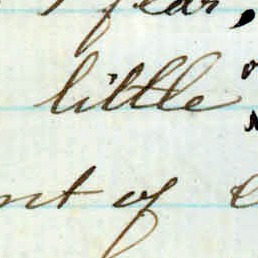 fear,
little
nt of